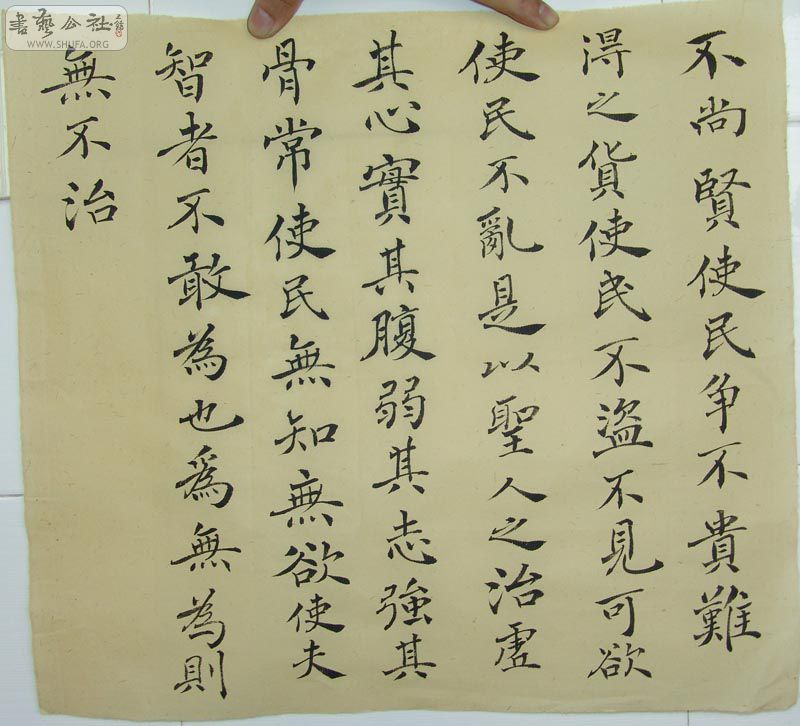 不尚賢使民爭不貴難
得之貨使民不盜不見可欲
使民不亂是以聖人之治虛
其心實其腹弱其志強其
骨常使民無知無欲使夫
智者不敢為也為無為則
無不治
書藝公社
WWW.SHUFA.ORG